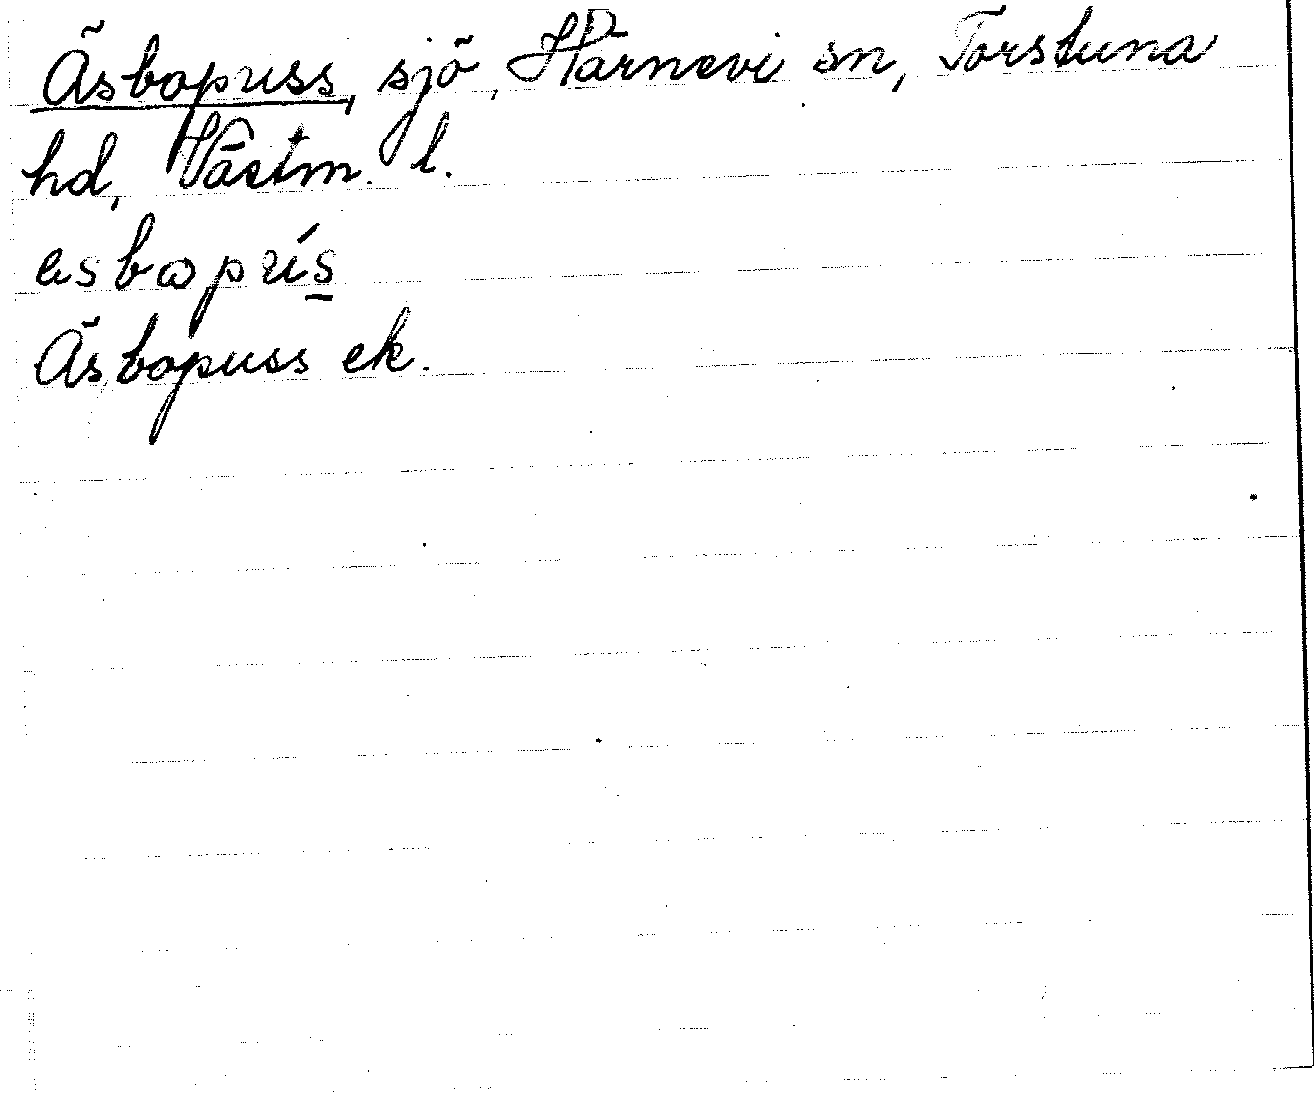 Äsbopuss, sjö, Härnevi sn, Torstuna
hd, Västm. l.
Äsbopuss ek.